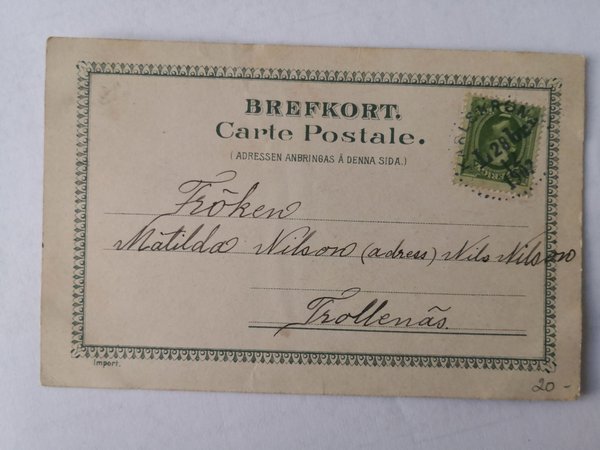 BREFKORT.
Carte Postale.
(ADRESSEN ANBRINGAS Å DENNA SIDA.)
Fröken
Matilda Nilson (adress) Nils Nilson
Trollenäs.
Import.
20 -